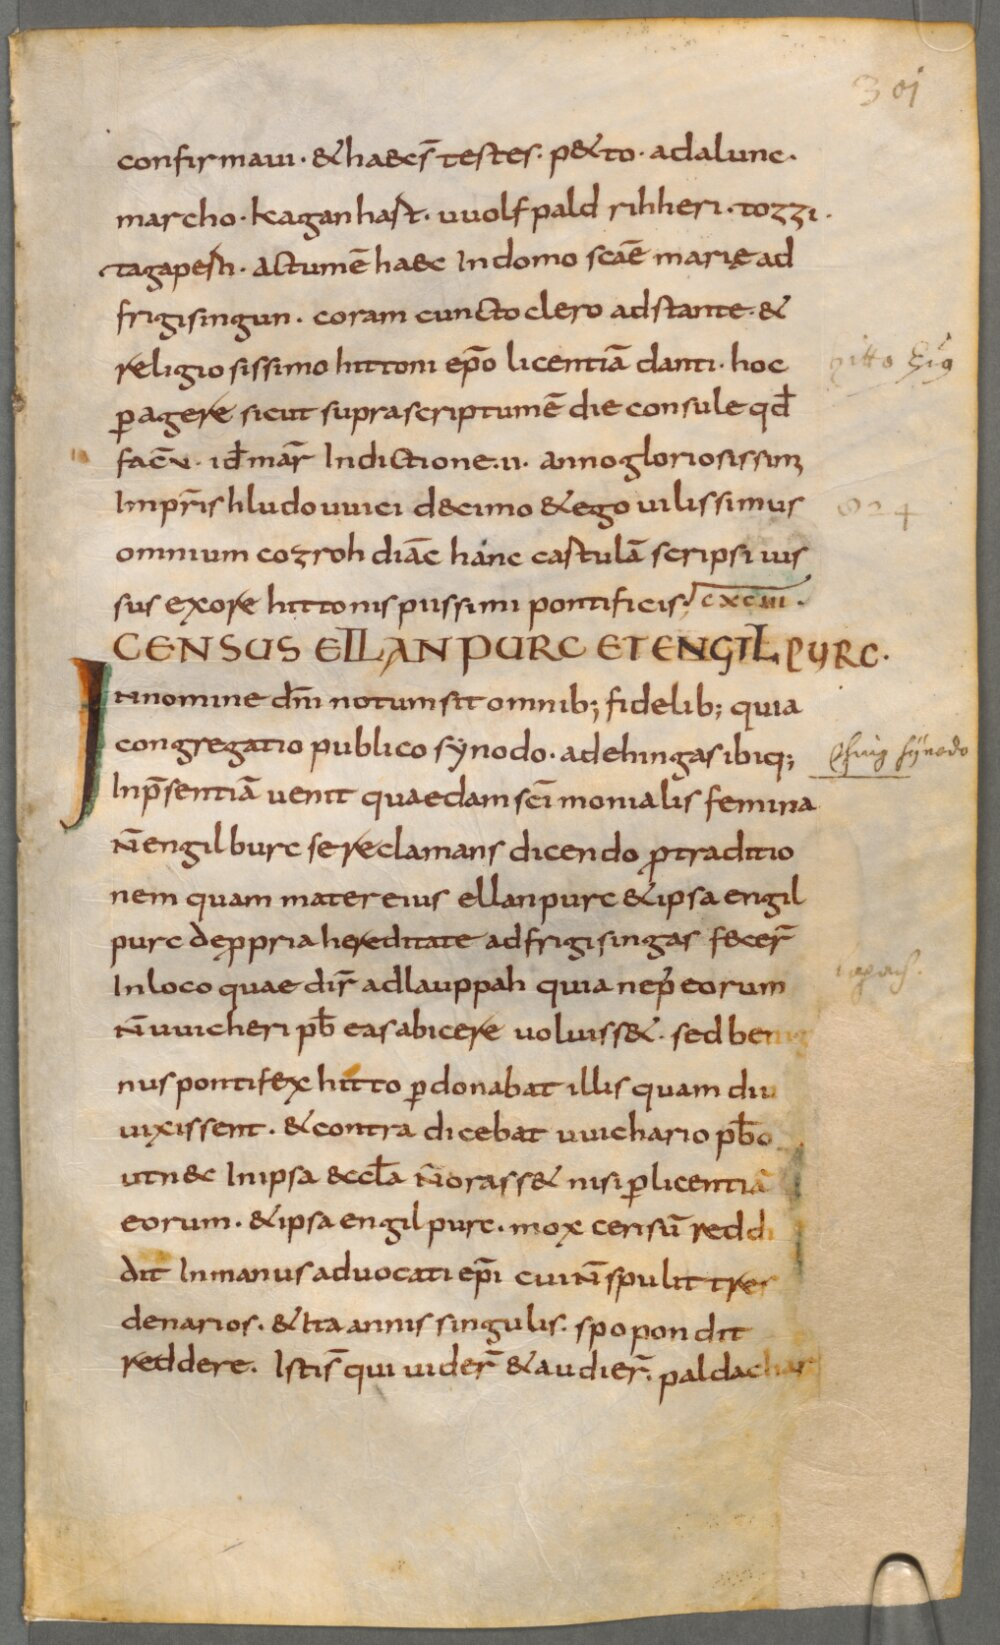 301
confirmaui · & haec s̄ testes · p&to · adalunc ·
marcho · kaganhast · uuolfpald rihheri · tozzi ·
tagapesti · actum ē haec In domo scāe marię ad
frigisingun · coram cuncto clero adstante · &
religiosissimo hittoni ep̄o licentiā danti · hoc
ꝑagere sicut suprascriptum ē die consule qđ
fac̄ · iđ mar̄ Indictione · ii · anno gloriosissimi
Imp̄ris hludouuici decimo & ego uilissimus
024
omnium cozroh diāc hanc castulā scripsi ius
sus ex ore hittonis piissimi pontificis · cxcııı ·
CENSUS ELLANPURC ET ENGILPURC ·
In nomine dn̄i notum sit omnib; fidelib; quia
congregatio publico synodo · ad ehingas ibiq;
synodo
In p̄sentiā uenit quaedam scīmonialis femina
n̄ engilburc se reclamans dicendo ꝓ traditio
nem quam mater eius ellanpurc & ipsa engil
purc de ꝓpria hereditate ad frigisingas fecer̄
In loco quae dir̄ ad lauppah quia nep̄ eorum
n̄ uuicheri pb̄ eas abicere uoluiss& · sed benig
nus pontifex hitto ꝑdonabat illis quam diu
uixissent · & contra dicebat uuichario pb̄o
ut nec In ipsa eccl̄a n̄ orass& nisi ꝑ licentiā
eorum · & ipsa engilpurc · mox censū reddi
dit In manus aduocati ep̄i cui n̄ spulit tres
denarios · & ita annis singulis · spopondit
reddere · Isti s̄ qui uider̄ & audier̄ · paldachar